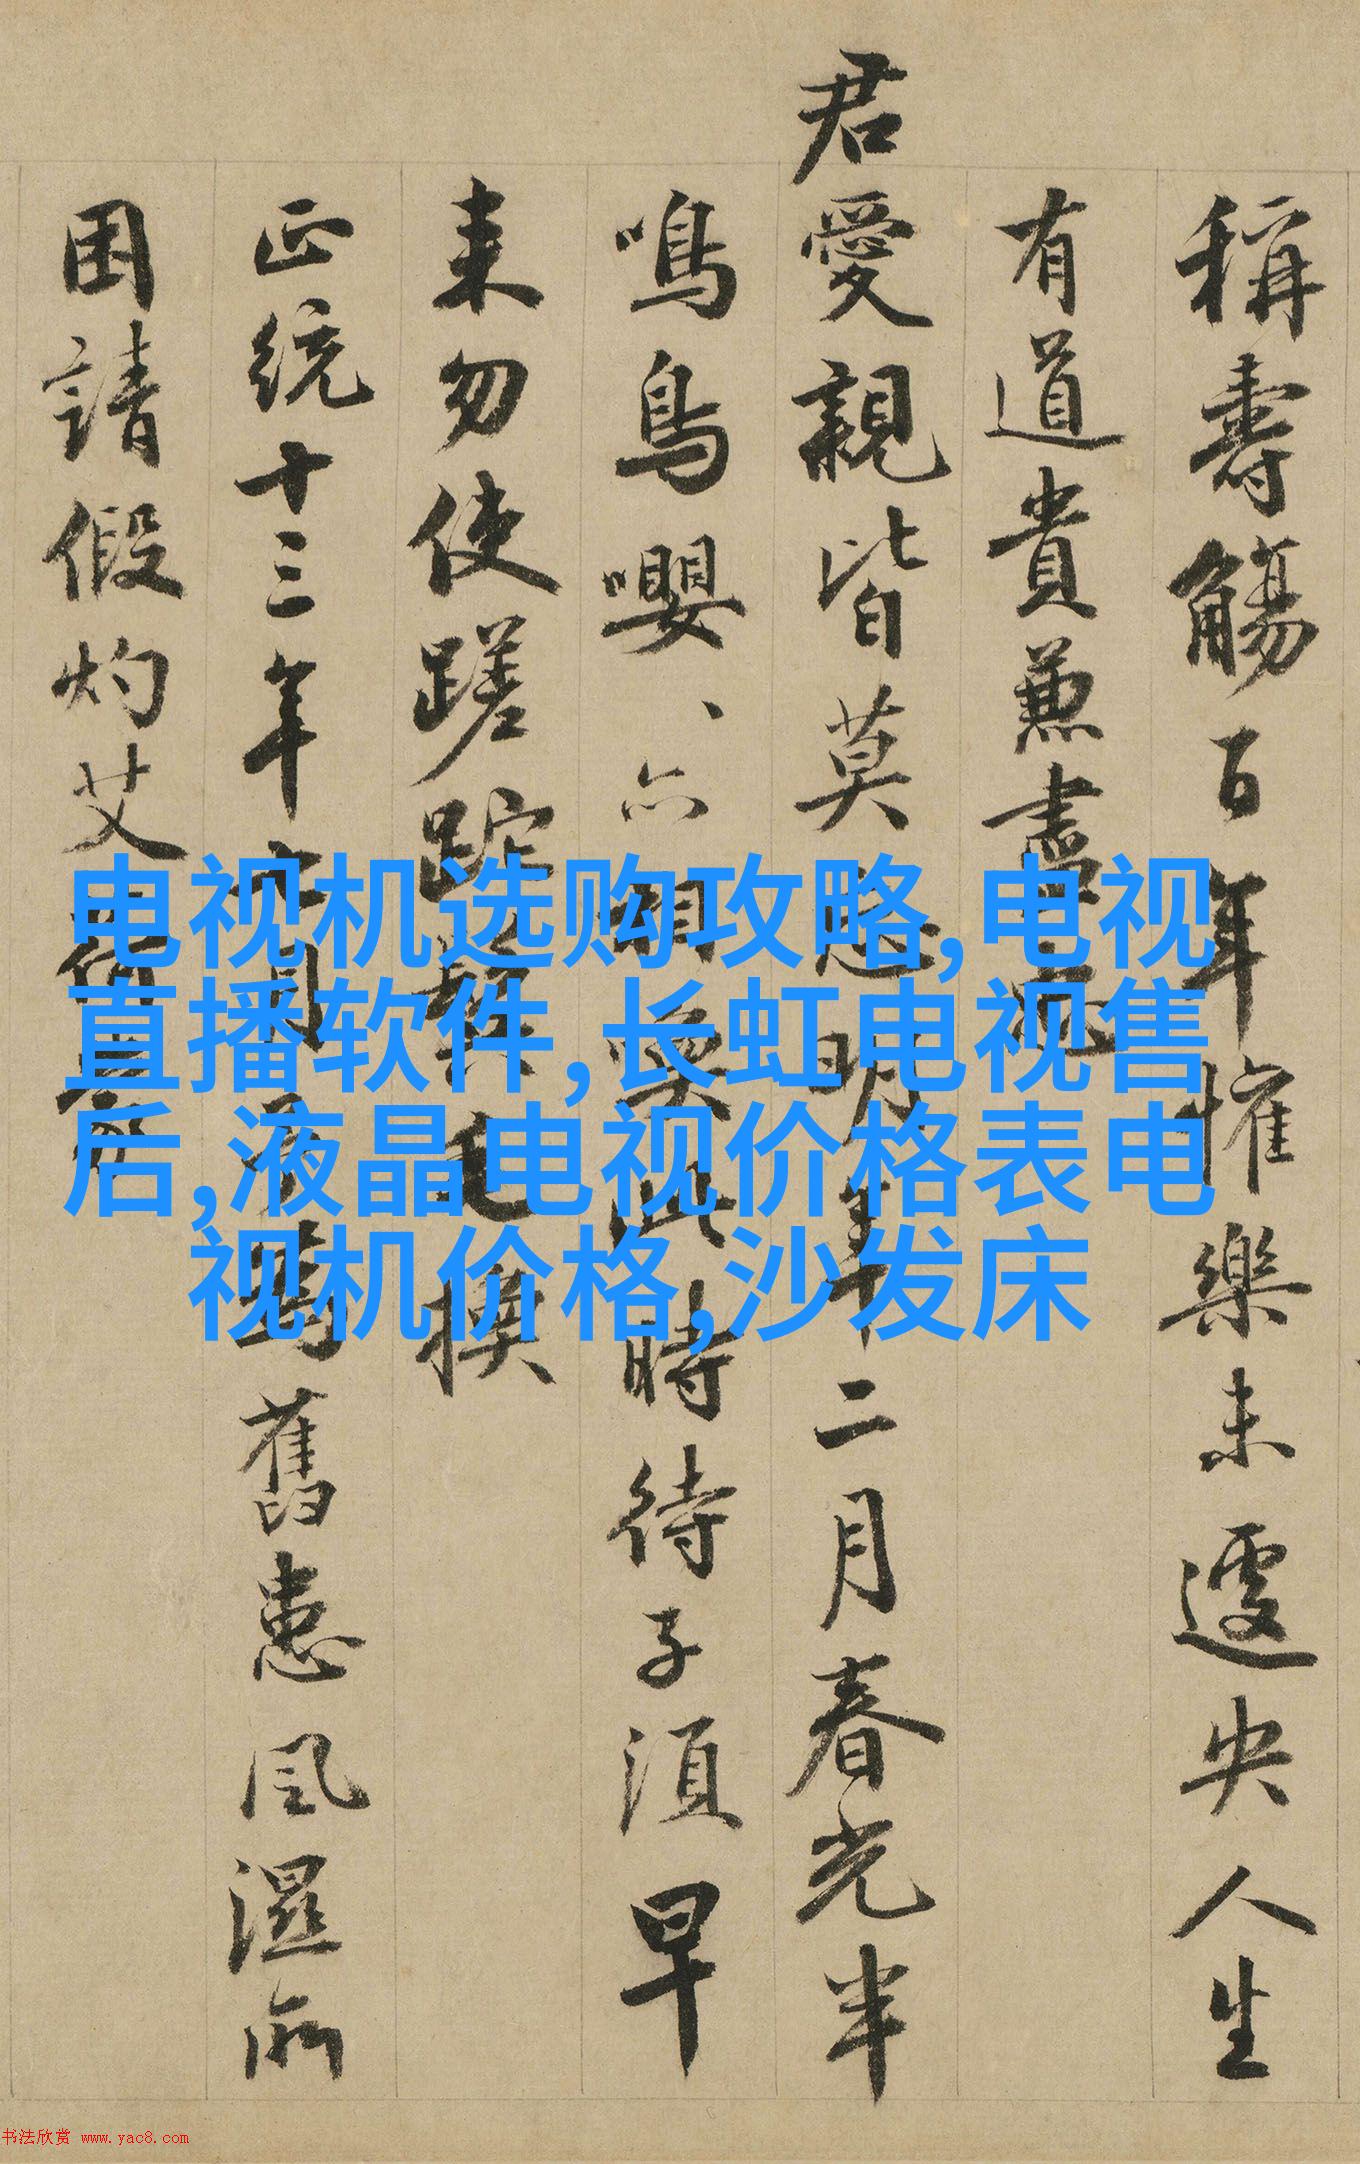 稱壽觴百年懽樂未遽央人生
有道貴兼盡
君愛親皆莫忘明年二月春光半
鳴鳥嚶、亦相喚此時待子須早
来勿使蹉跎鬢毛換
正統十三年月舊患風濕所
困請假灼艾
电视机选购攻略,电视
直播软件,长虹电视售
后,液晶电视价格表电
视机价格,沙发床
书法欣赏 www.yac8.com